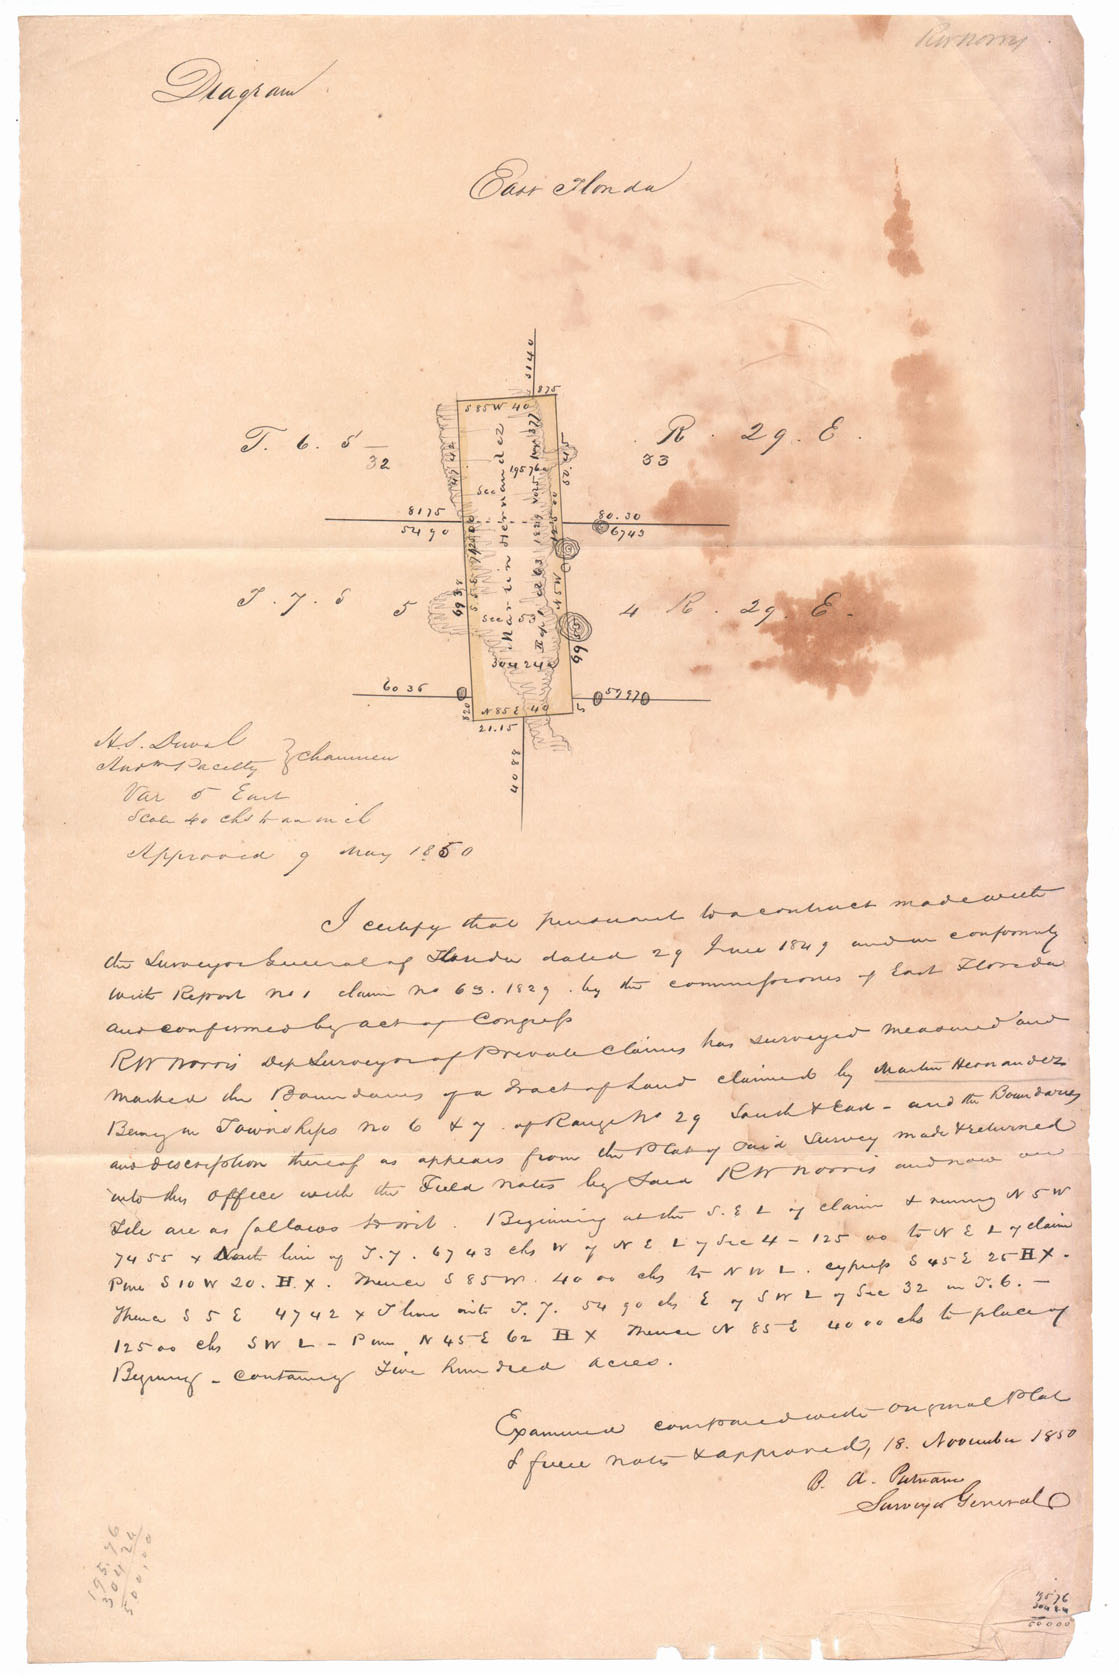 RW Norris
Diagram
East Florida
5140
875
S 85 W 40
T. 6. S
32
R. 29. E.
33
47 42
Martin Hernandez
195 76
Sec
8175
54 90
80.30
6743
T. 7. S
5
4 R. 29. E.
69 38
Sec 53
304 24
N 5 W
60 36
820
N 85 E 40
21.15
5797
40 88
H. S. Duval
Pacetty } chainmen
Var 5 East
Scale 40 chs to an inch
Approved 9 May 1850
I certify that pursuant to a contract made with
the Surveyor General of Florida dated 29 June 1849 and in conformity
with Report No 1 claim No 63. 1829. by the commissioners of East Florida
and confirmed by act of Congress
RW Norris Dep Surveyor of Private Claims has surveyed measured and
marked the Boundaries of a Tract of Land claimed by Martin Hernandez
Being in Townships No 6 & 7. of Range No 29 South & East - and the Boundaries
and description thereof as appears from the Plat of said Survey made & returned
into this office with the Field notes by Said RW Norris and now on
File are as follows to wit. Beginning at the S. E L of claim & running N 5 W
74 55 x North line of T. 7. 67 43 chs W of N E L of Sec 4 - 125 00 to N E L of claim
Pine S 10 W 20. H X. Thence S 85 W. 40 00 chs to N W L. cypress S 45 E 25 H X.
Thence S 5 E 47 42 x T line into T. 7. 54 90 chs E of S W L of Sec 32 in T. 6. -
125 00 chs S W L - Pine N 45 E 62 H X Thence N 85 E 40 00 chs to place of
Begining - containing Five hundred acres.
Examined compared with original Plat
& field notes & approved, 18. November 1850
B. A. Putnam
Surveyor General
195.76
304 24
500,00
195 76
304 24
500 00